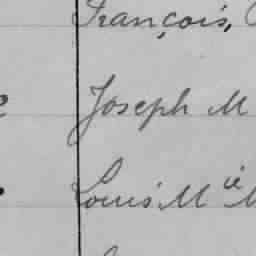 François,
Joseph M
Louis Mie